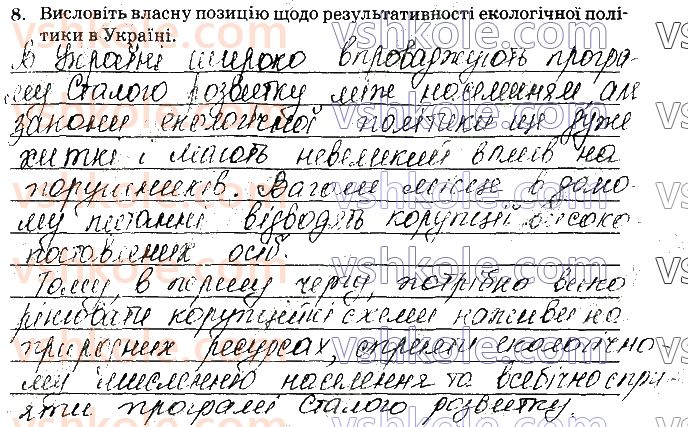 8. Висловіть власну позицію щодо результативності екологічної полі-
тики в Україні.
В Україні широко впроваджують програ-
му Сталого розвитку між населенням але
закони екологічної політики ще дуже
хиткі і мають невеликий вплив на
порушників. Вагоме місце в дано-
му питанні відводять корупції високо
поставлених осіб.
Тому, в першу чергу, потрібно вико
рінювати корупційні схеми наживи на
природних ресурсах, сприяти екологічно-
му мисленню населення та всебічно спри
яти програмі Сталого розвитку.
vshkole.com